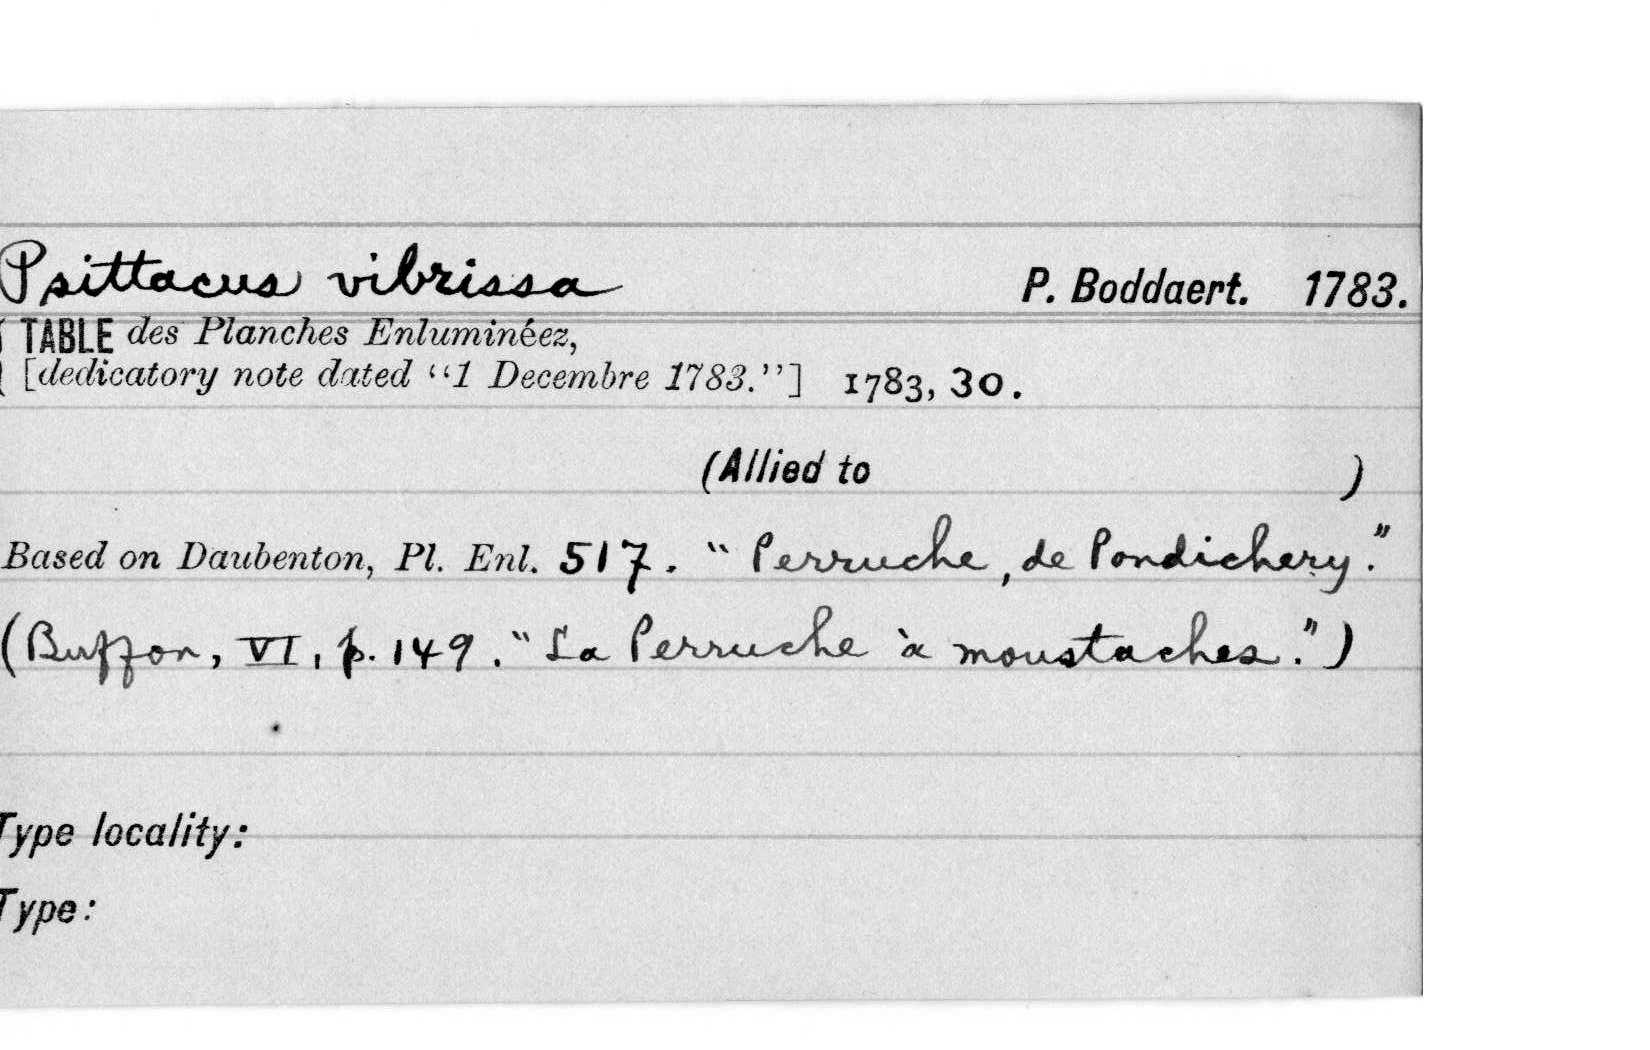 Psittacus vibrissa P. Boddaert. 1783.
( TABLE des Planches Enluminéez,
( [dedicatory note dated “1 Decembre 1783.”] 1783, 30.
(Allied to )
Based on Daubenton, Pl. Enl. 517. “Perruche, de Pondichery.”
(Buffon, VI, p. 149. “La Perruche à moustaches.”)
Type locality:
Type: